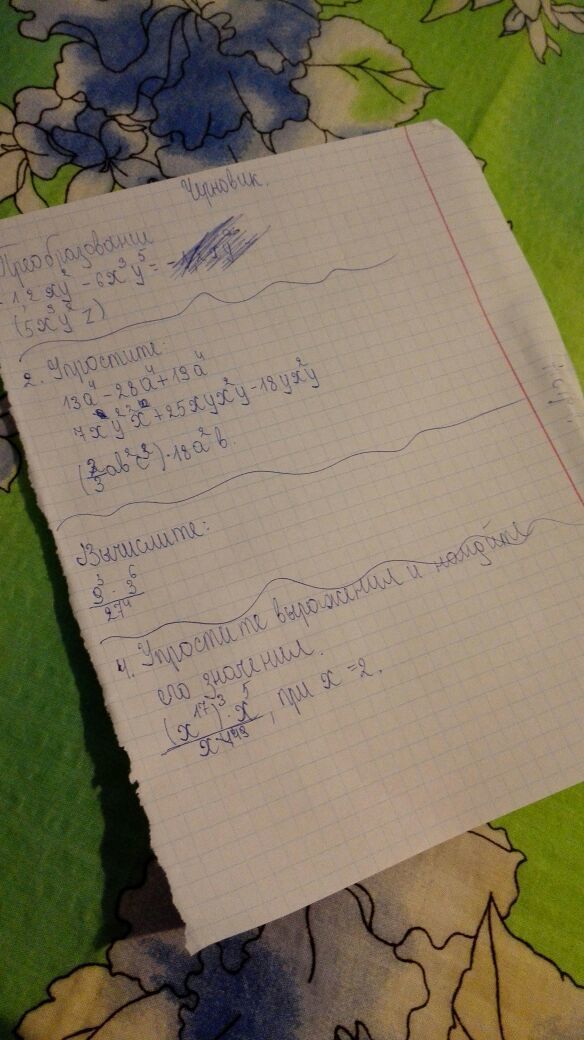 Черновик.
Преобразование
-1,2xy² - 6x³y⁵ = -
(5x³y z)
2. Упростите:
13a⁴-28a⁴+19a⁴
7x y²x +25xyx²y-18yx²y
(2/3 ab²c²)·18a²b.
Вычислите:
9³·3⁶/27⁴
4. Упростите выражения и найдите
его значения.
(x¹⁷)³·x⁵/x , при x=2.